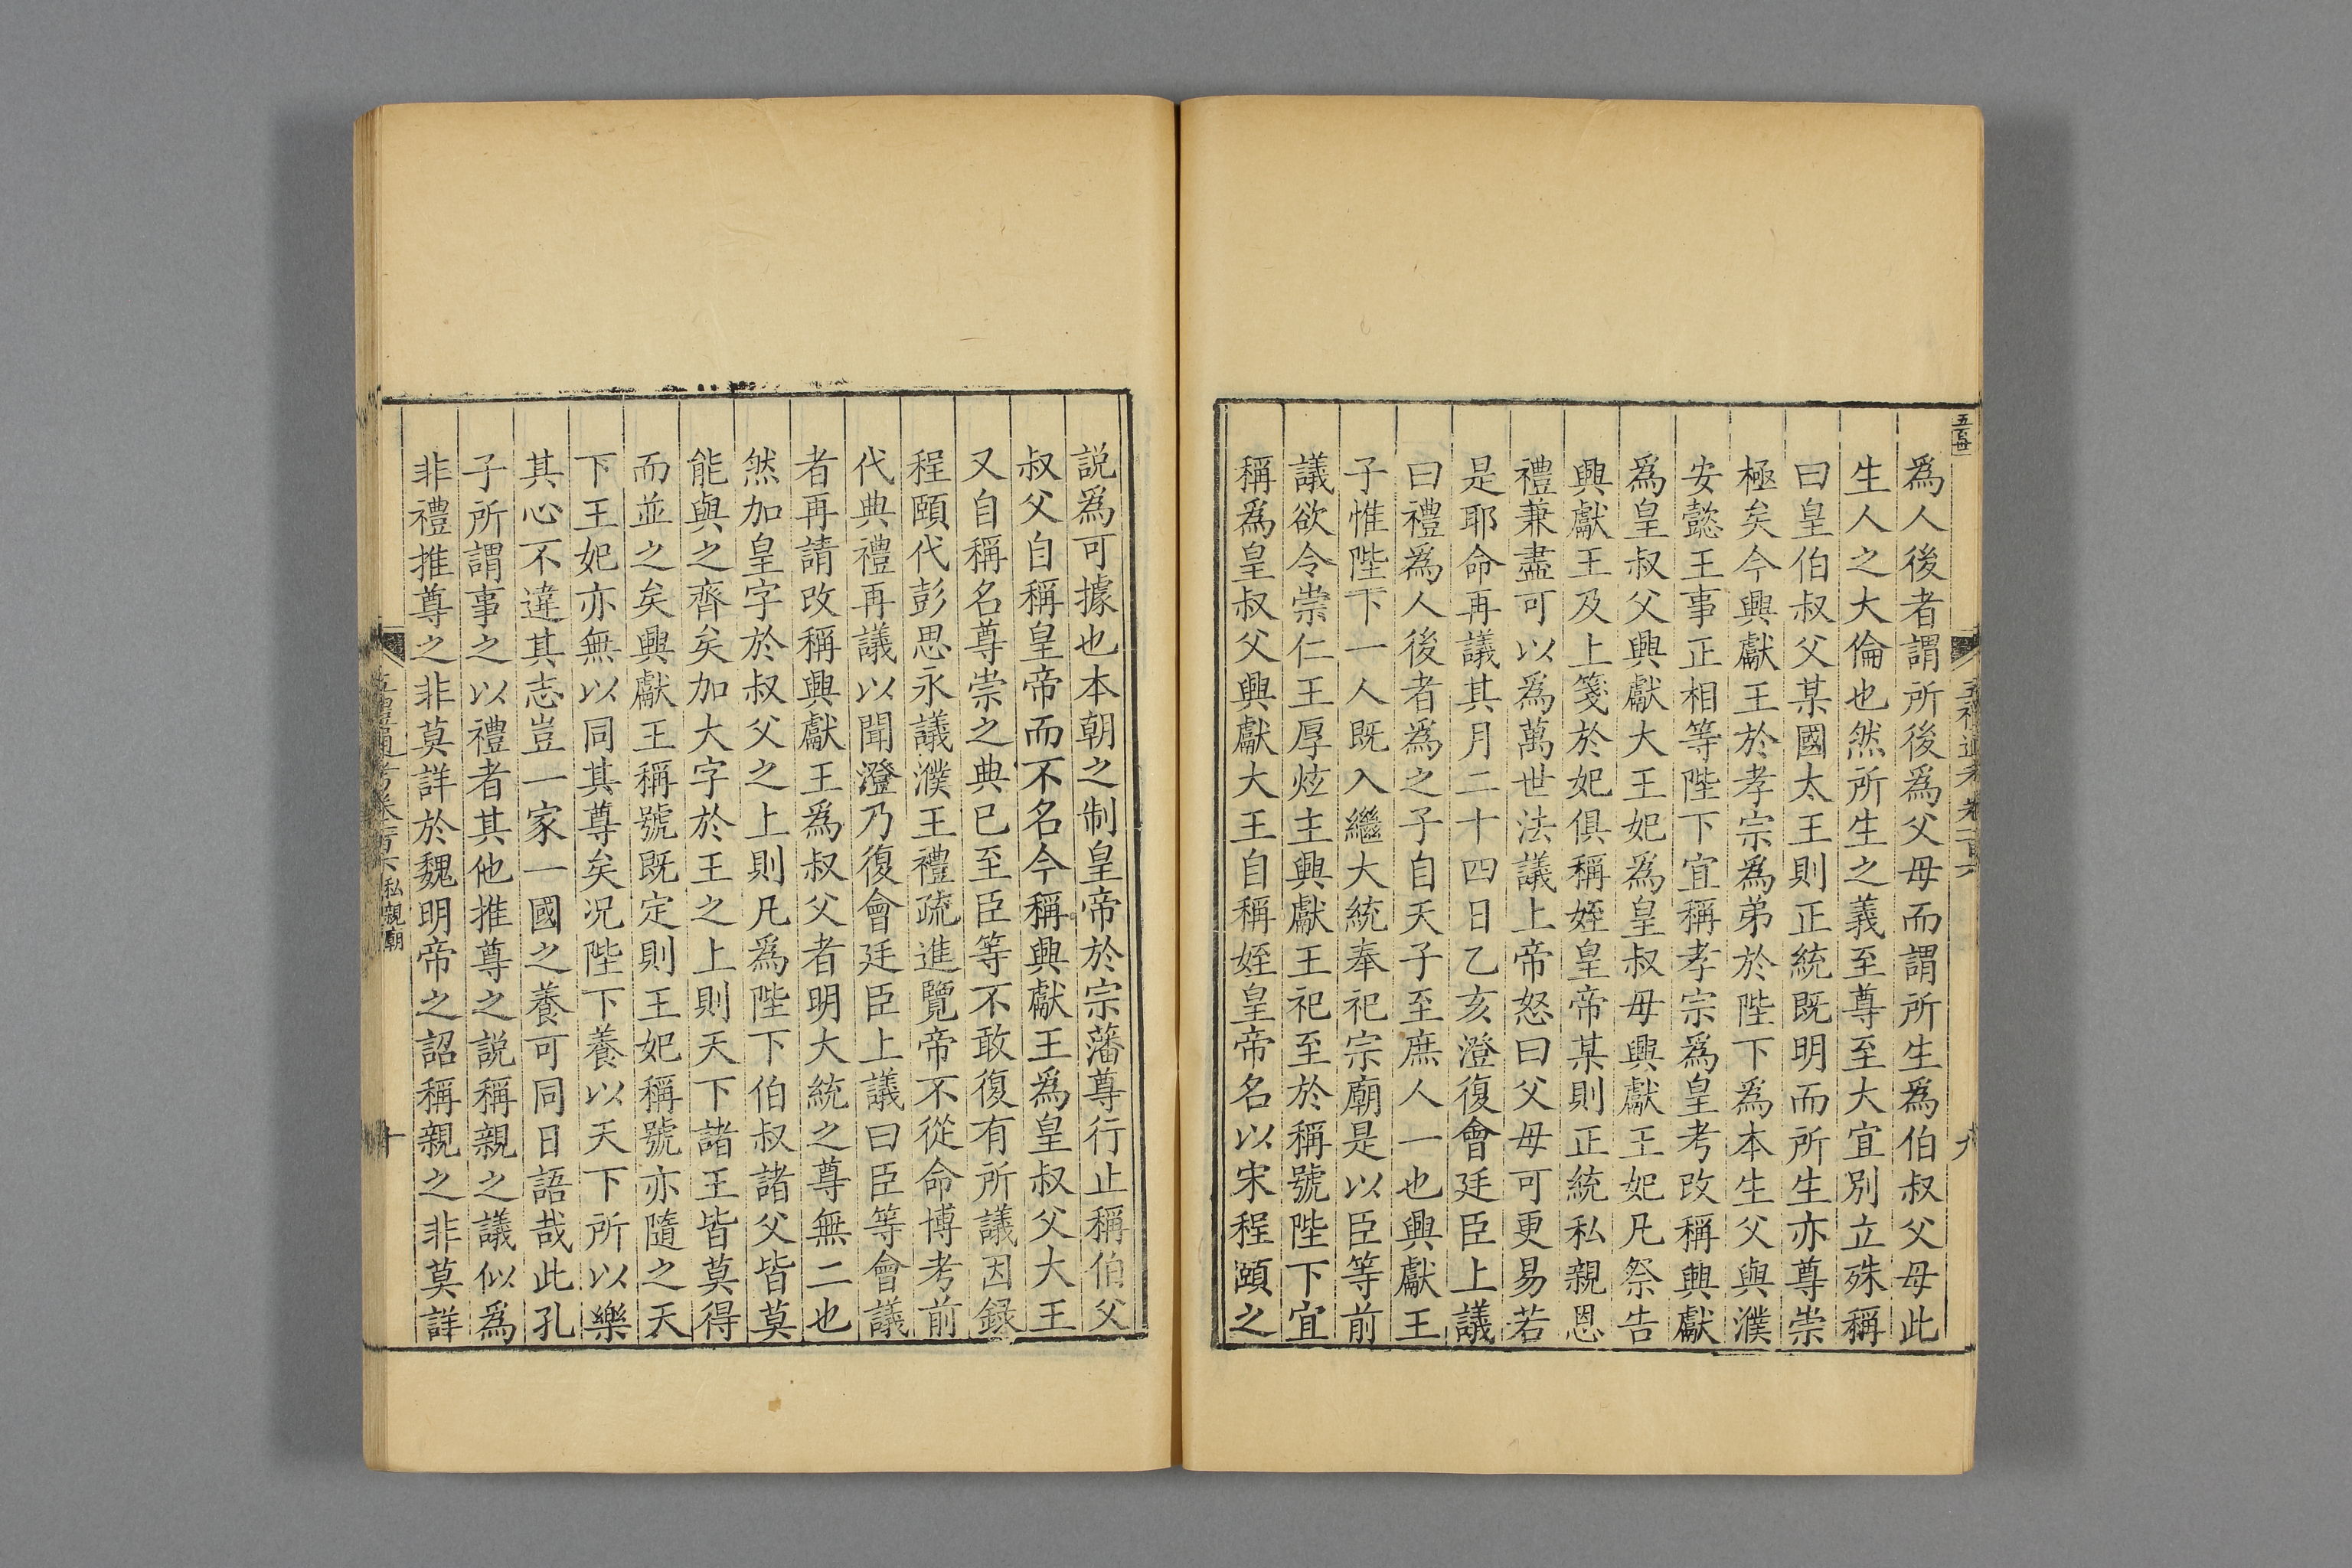 爲人後者謂所後爲父母而謂所生爲伯叔父母此
生人之大倫也然所生之義至尊至大宜別立殊稱
曰皇伯叔父某國太王則正統既明而所生亦尊崇
極矣今興獻王於孝宗爲弟於陛下爲本生父與濮
安懿王事正相等陛下宜稱孝宗爲皇考改稱興獻
爲皇叔父興獻大王妃爲皇叔母興獻王妃凡祭告
興獻王及上箋於妃俱稱姪皇帝某則正統私親恩
禮兼盡可以爲萬世法議上帝怒曰父母可更易若
是耶命再議其月二十四日乙亥澄復會廷臣上議
曰禮爲人後者爲之子自天子至庶人一也興獻王
子惟陛下一人既入繼大統奉祀宗廟是以臣等前
議欲令崇仁王厚炫主興獻王祀至於稱號陛下宜
稱爲皇叔父興獻大王自稱姪皇帝名以宋程頤之
說爲可據也本朝之制皇帝於宗藩尊行止稱伯父
叔父自稱皇帝而不名今稱興獻王爲皇叔父大王
又自稱名尊崇之典已至臣等不敢復有所議因録
程頤代彭思永議濮王禮疏進覽帝不從命博考前
代典禮再議以聞澄乃復會廷臣上議曰臣等會議
者再請改稱興獻王爲叔父者明大統之尊無二也
然加皇字於叔父之上則凡爲陛下伯叔諸父皆莫
能與之齊矣加大字於王之上則天下諸王皆莫得
而並之矣興獻王稱號既定則王妃稱號亦隨之天
下王妃亦無以同其尊矣況陛下養以天下所以樂
其心不違其志豈一家一國之養可同日語哉此孔
子所謂事之以禮者其他推尊之說稱親之議似爲
非禮推尊之非莫詳於魏明帝之詔稱親之非莫詳
五禮通考卷一百六 私親廟
十